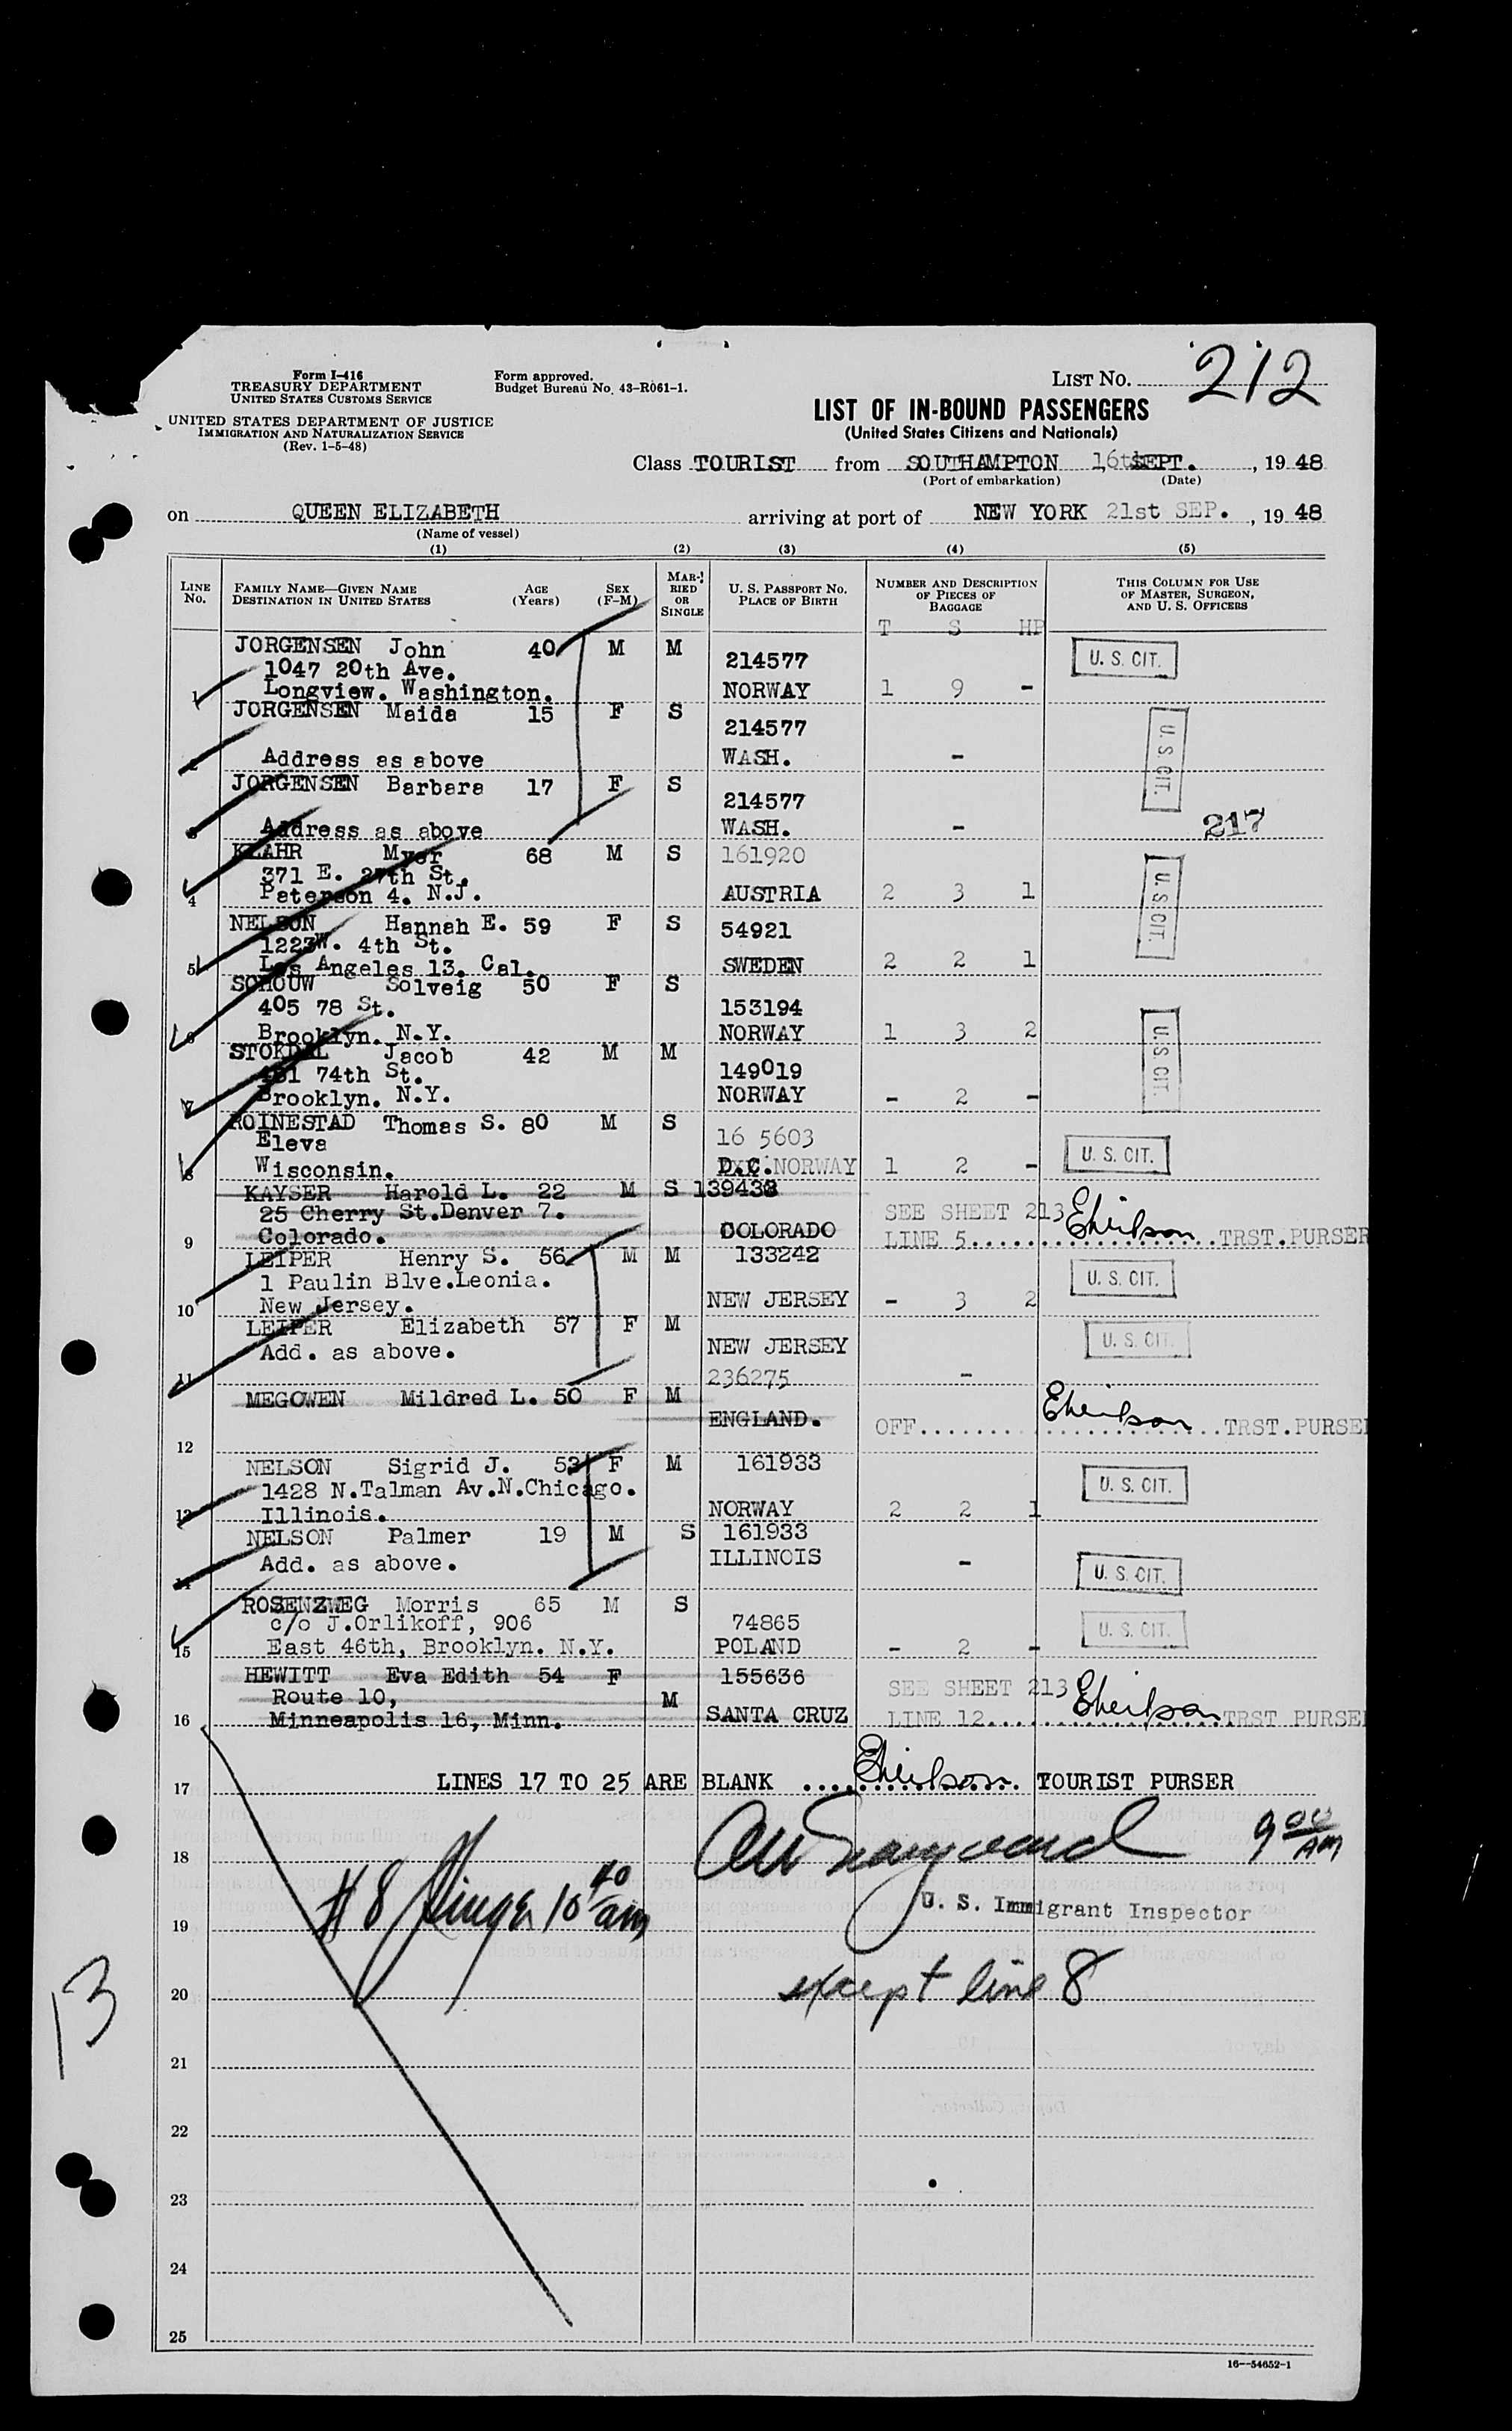 Form I-416
TREASURY DEPARTMENT
UNITED STATES CUSTOMS SERVICE
UNITED STATES DEPARTMENT OF JUSTICE
IMMIGRATION AND NATURALIZATION SERVICE
(Rev. 1-5-48)
Form approved.
Budget Bureau No. 43-R061-1.
LIST NO. 212
LIST OF IN-BOUND PASSENGERS
(United States Citizens and Nationals)
Class TOURIST from SOUTHAMPTON 16th SEPT., 1948
(Port of embarkation) (Date)
on QUEEN ELIZABETH arriving at port of NEW YORK 21st SEP., 1948
(Name of vessel)
(1) (2) (3) (4) (5)
LINE NO.
FAMILY NAME—GIVEN NAME
DESTINATION IN UNITED STATES
AGE (Years)
SEX (F-M)
MARRIED OR SINGLE
U. S. PASSPORT NO.
PLACE OF BIRTH
NUMBER AND DESCRIPTION OF PIECES OF BAGGAGE
THIS COLUMN FOR USE OF MASTER, SURGEON, AND U. S. OFFICERS
T S HP
JORGENSEN John 40 M M 214577 U. S. CIT.
1047 20th Ave.
1 Longview. Washington. NORWAY 1 9 -
JORGENSEN Maida 15 F S 214577 U. S. CIT.
2 Address as above WASH. -
JORGENSEN Barbara 17 F S 214577
3 Address as above WASH. - 217
KLAHR Myer 68 M S 161920 U. S. CIT.
371 E. 27th St.
4 Paterson 4. N.J. AUSTRIA 2 3 1
NELSON Hannah E. 59 F S 54921
1223W. 4th St.
5 Los Angeles 13. Cal. SWEDEN 2 2 1
SCHOUW Solveig 50 F S 153194
405 78 St.
6 Brooklyn. N.Y. NORWAY 1 3 2 U. S. CIT.
STOKDAL Jacob 42 M M 149019
74th St.
7 Brooklyn. N.Y. NORWAY - 2 -
ROINESTAD Thomas S. 80 M S 16 5603
Eleva U. S. CIT.
8 Wisconsin. D.C. NORWAY 1 2 -
KAYSER Harold L. 22 M S 139438
25 Cherry St.Denver 7. SEE SHEET 213
9 Colorado. COLORADO LINE 5 TRST.PURSER
LEIPER Henry S. 56 M M 133242
1 Paulin Blve.Leonia. U. S. CIT.
10 New Jersey. NEW JERSEY - 3 2
LEIPER Elizabeth 57 F M NEW JERSEY U. S. CIT.
Add. as above.
11 236275 -
MEGOWEN Mildred L. 50 F M
ENGLAND. OFF TRST.PURSER
12
NELSON Sigrid J. 53 F M 161933
1428 N.Talman Av.N.Chicago. U. S. CIT.
13 Illinois. NORWAY 2 2 1
NELSON Palmer 19 M S 161933
Add. as above. ILLINOIS -
14 U. S. CIT.
ROSENZWEG Morris 65 M S
c/o J.Orlikoff, 906 74865 U. S. CIT.
15 East 46th, Brooklyn. N.Y. POLAND - 2 -
HEWITT Eva Edith 54 F 155636
Route 10, M SEE SHEET 213
16 Minneapolis 16, Minn. SANTA CRUZ LINE 12 TRST PURSER
17 LINES 17 TO 25 ARE BLANK TOURIST PURSER
18 9 00 AM
# 8 10 40 am
19 U. S. Immigrant Inspector
20 except line 8
13
21
22
23
24
25
16—54652-1